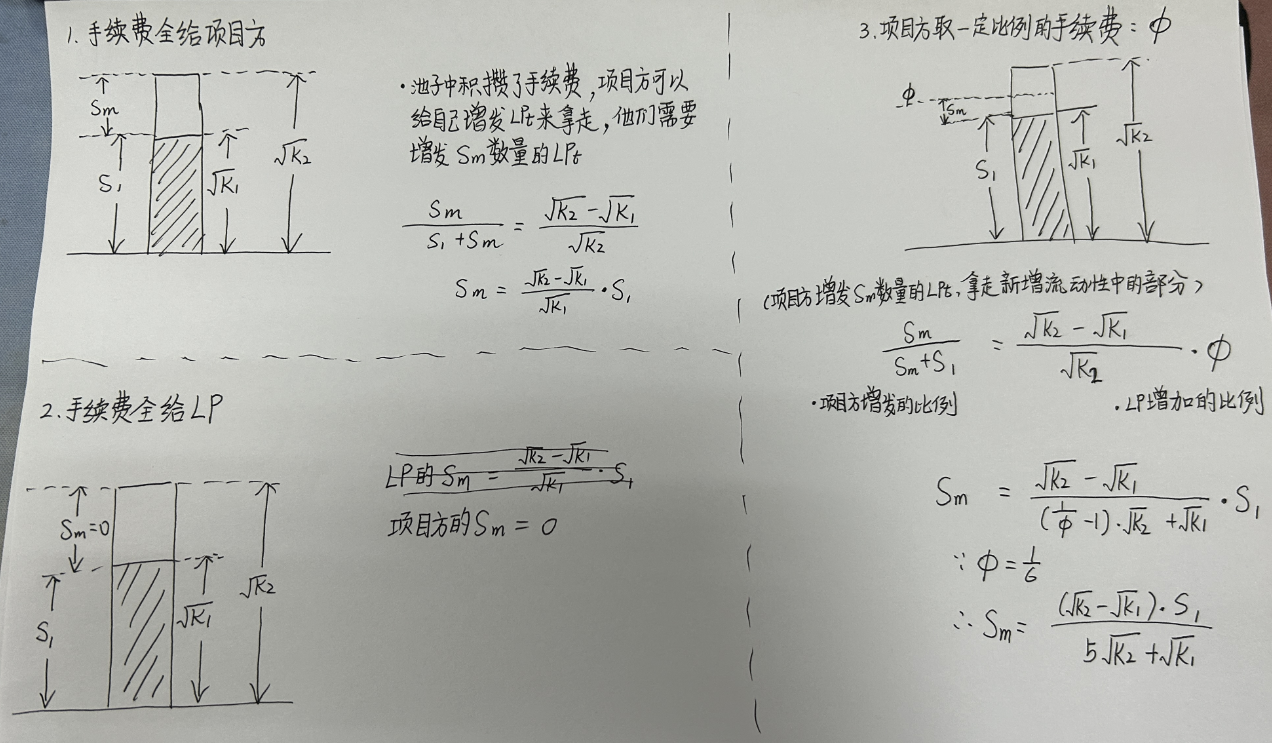 1. 手续费全给项目方
Sm
S₁
√K₁
√K₂
·池子中积攒了手续费,项目方可以
给自己增发LPt来拿走,他们需要
增发Sm数量的LPt
Sm / (S₁ + Sm) = (√K₂ - √K₁) / √K₂
Sm = (√K₂ - √K₁) / √K₁ · S₁
2. 手续费全给LP
Sm=0
S₁
√K₁
√K₂
LP的Sm = (√K₂ - √K₁) / √K₁ · S₁
项目方的Sm = 0
3. 项目方取一定比例的手续费: ϕ
ϕ
Sm
S₁
√K₁
√K₂
(项目方增发Sm数量的LPt, 拿走新增流动性中的部分)
Sm / (Sm + S₁) = (√K₂ - √K₁) / √K₂ · ϕ
·项目方增发的比例
·LP增加的比例
Sm = (√K₂ - √K₁) / ((1/ϕ - 1)·√K₂ + √K₁) · S₁
∵ ϕ = 1/6
∴ Sm = (√K₂ - √K₁)·S₁ / (5√K₂ + √K₁)